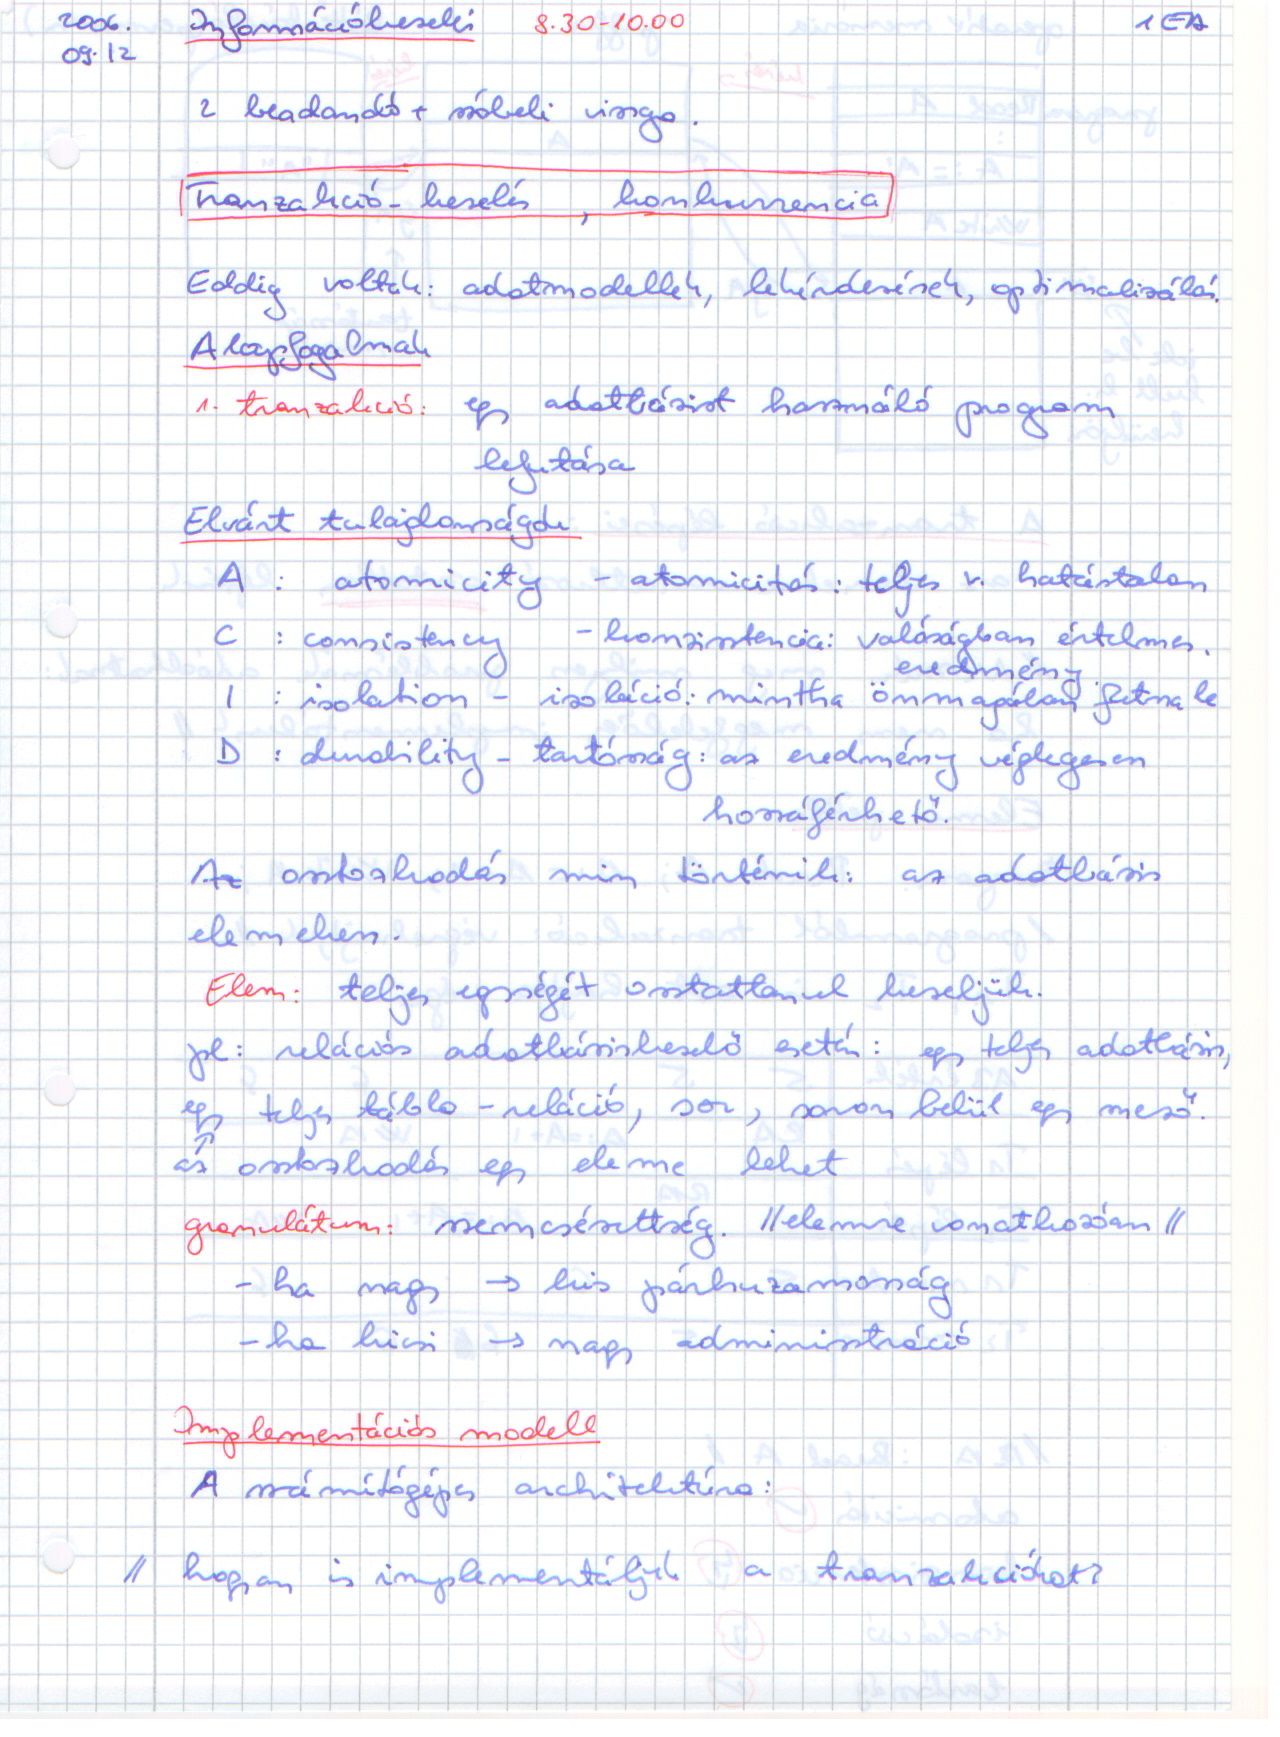 2006. Információkezelés 8.30-10.00 1 EA
09.12
2 beadandó + szóbeli vizsga.
Tranzakció-kezelés, konkurrencia
Eddig voltak: adatmodellek, lekérdezések, optimalizálás.
Alapfogalmak
1. tranzakció: egy adatbázist használó program
lefutása
Elvárt tulajdonságok
A : atomicity - atomicitás: teljes v. hatástalan
C : consistency - konzisztencia: valóságban értelmes.
eredmény
I : isolation - izoláció: mintha önmagában futna le
D : durability - tartósság: az eredmény véglegesen
hozzáférhető.
Az osztozkodás min történik: az adatbázis
elemeken.
Elem: teljes egységét osztatlanul kezeljük.
pl: relációs adatbáziskezelő esetén: egy teljes adatbázis,
egy teljes tábla - reláció, sor, soron belül egy mező.
az osztozkodás egy eleme lehet
granulátum: szemcsézettség. //elemre vonatkozóan//
- ha nagy → kis párhuzamosság
- ha kicsi → nagy adminisztráció
Implementációs modell
A számítógépes architektúra:
// hogyan is implementáljuk a tranzakciókat?